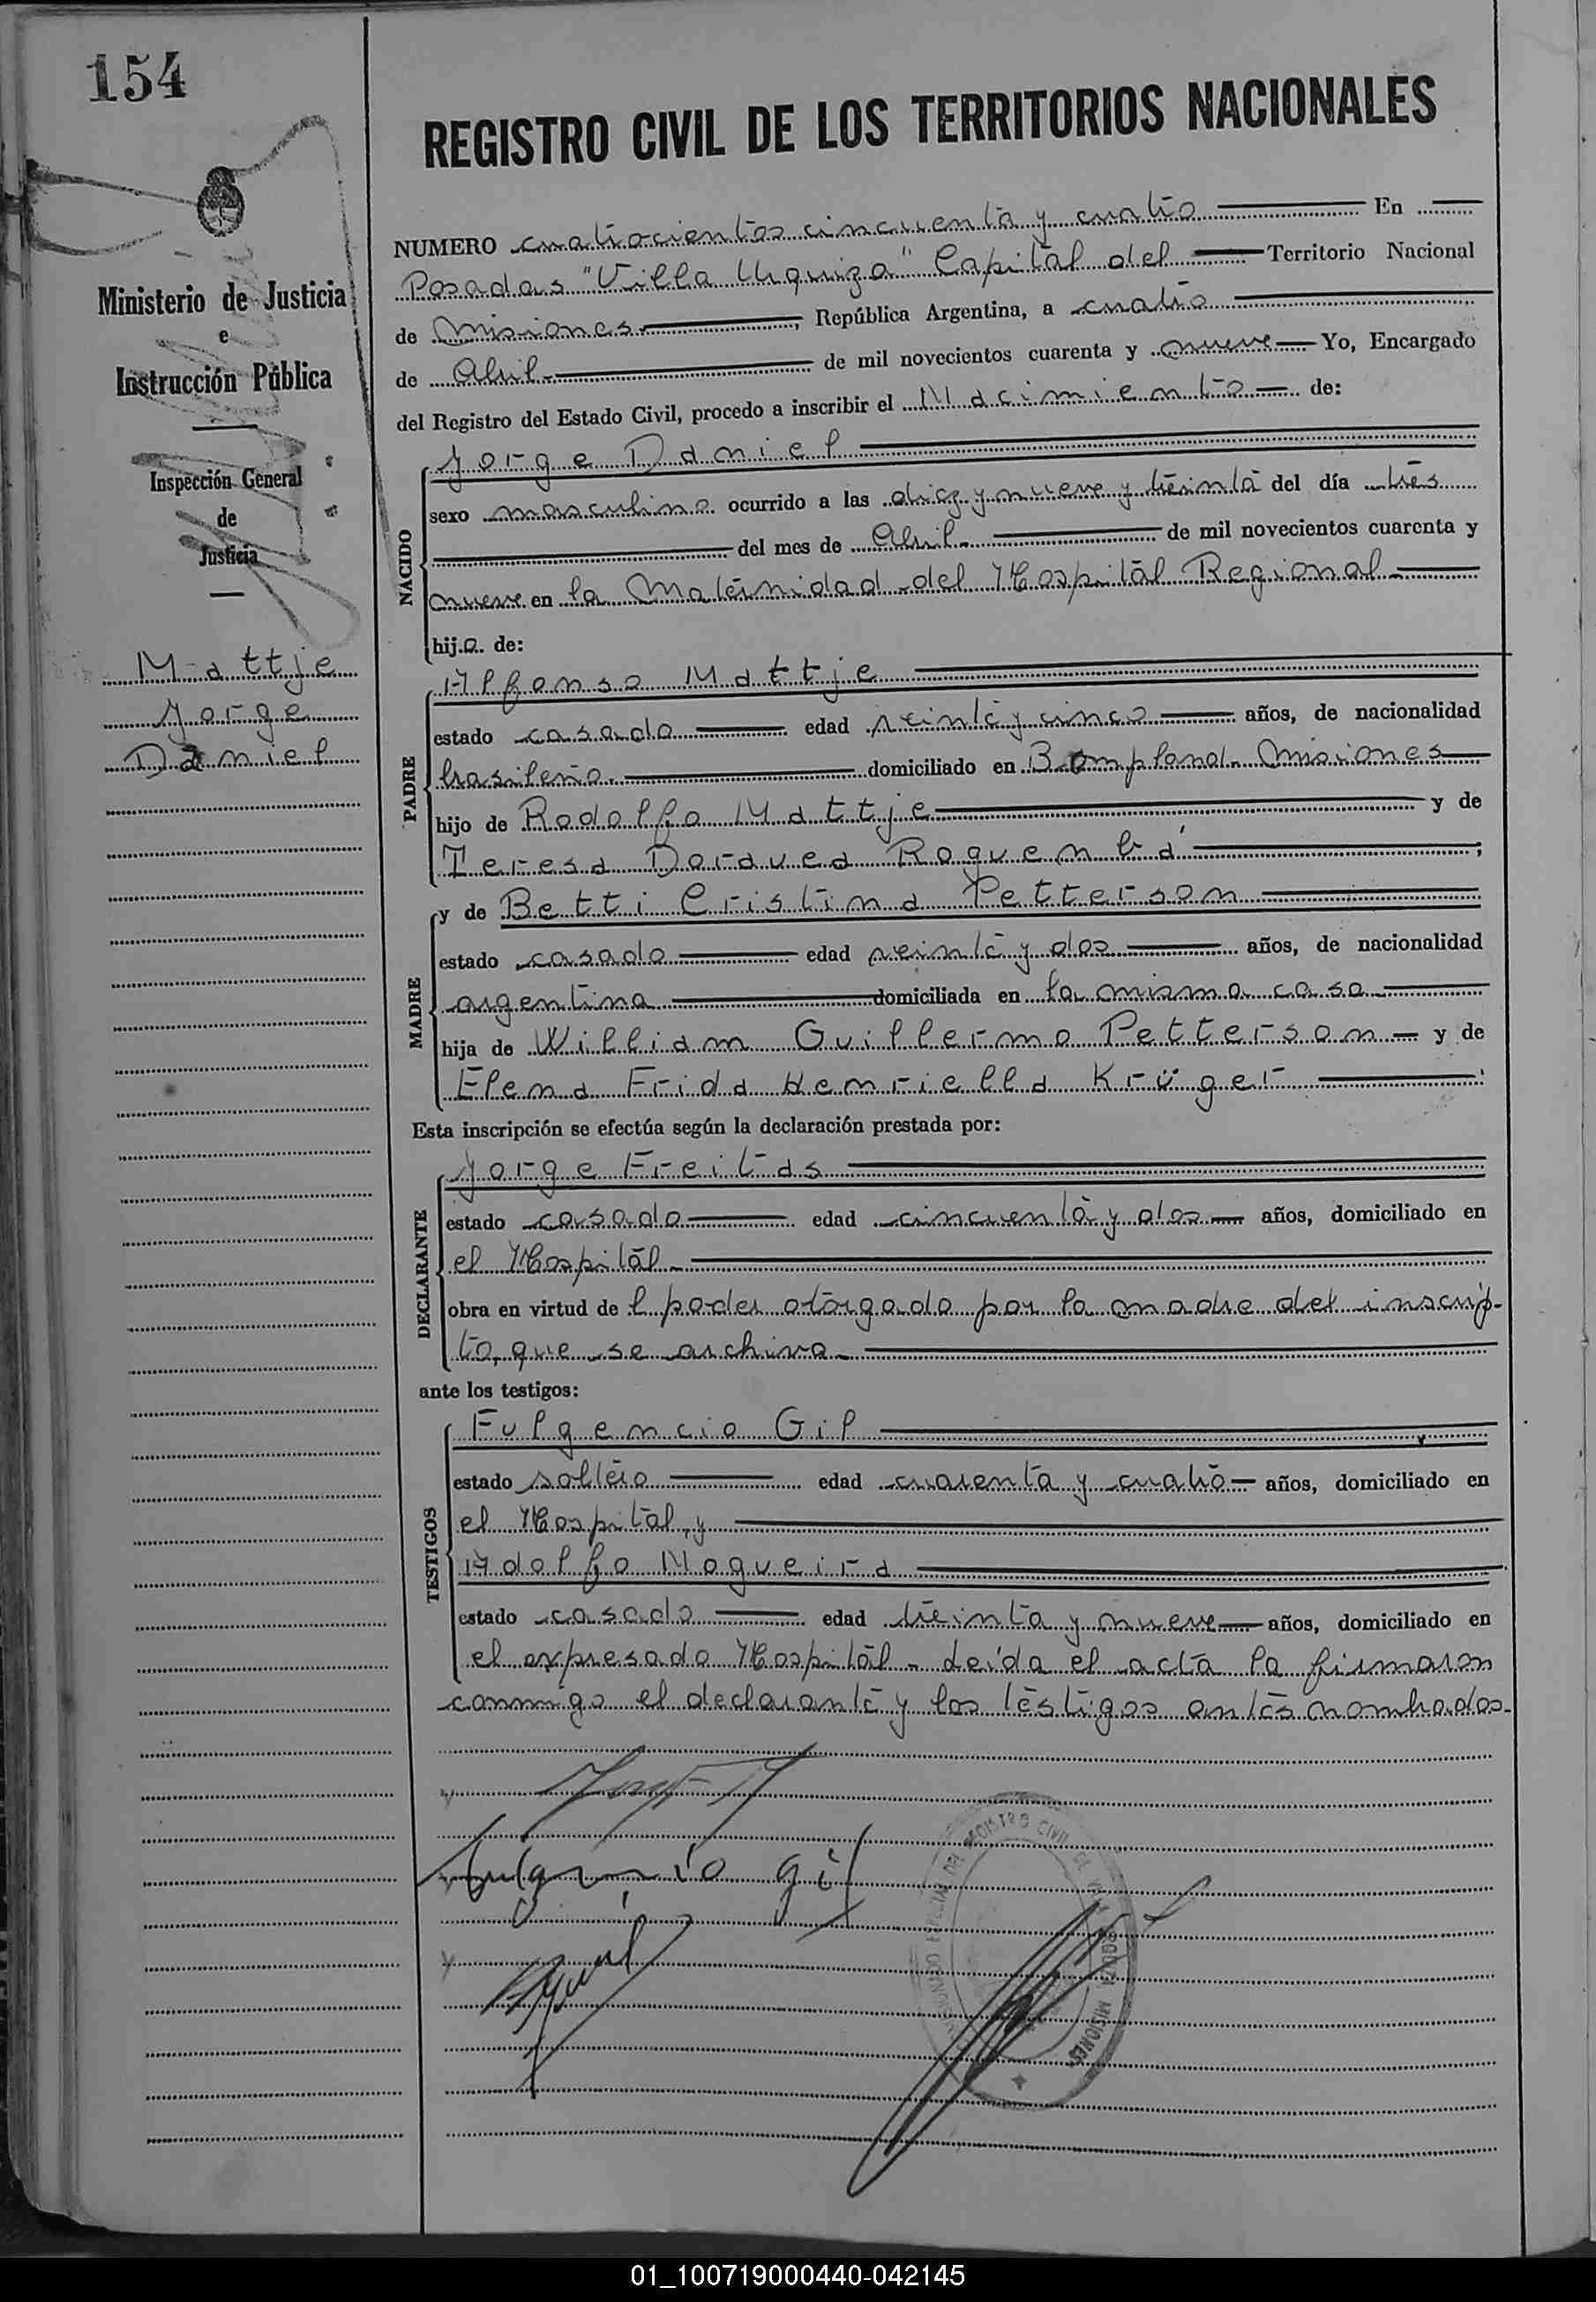 154
REGISTRO CIVIL DE LOS TERRITORIOS NACIONALES
Ministerio de Justicia
e
Instrucción Pública
Inspección General
de
Justicia
Mattje
Jorge
Daniel
NUMERO cuatrocientos cincuenta y cuatro En
Posadas "Villa Urquiza" Capital del Territorio Nacional
de Misiones, República Argentina, a cuatro
de Abril de mil novecientos cuarenta y nueve Yo, Encargado
del Registro del Estado Civil, procedo a inscribir el Nacimiento de:
NACIDO
Jorge Daniel
sexo masculino ocurrido a las diez y nueve y treinta del día tres
del mes de Abril de mil novecientos cuarenta y
nueve en la Maternidad del Hospital Regional
hijo de:
PADRE
Alfonso Mattje
estado casado edad veinte y cinco años, de nacionalidad
brasileña domiciliado en Bompland - Misiones
hijo de Rodolfo Mattje y de
Teresa Doravea Roquembá;
MADRE
y de Betti Cristina Petterson
estado casada edad veinte y dos años, de nacionalidad
argentina domiciliada en la misma casa
hija de William Guillermo Petterson y de
Elena Frida Henriella Krüger
Esta inscripción se efectúa según la declaración prestada por:
DECLARANTE
Jorge Freitas
estado casado edad cincuenta y dos años, domiciliado en
el Hospital
obra en virtud de l poder otorgado por la madre del inscrip-
to, que se archiva
ante los testigos:
TESTIGOS
Fulgencio Gil
estado soltero edad cuarenta y cuatro años, domiciliado en
el Hospital, y
Adolfo Nogueira
estado casado edad treinta y nueve años, domiciliado en
el expresado Hospital - Leída el acta la firmaron
conmigo el declarante y los testigos antes nombrados.
Fulgencio Gil
REGISTRO CIVIL MISIONES
01_100719000440-042145